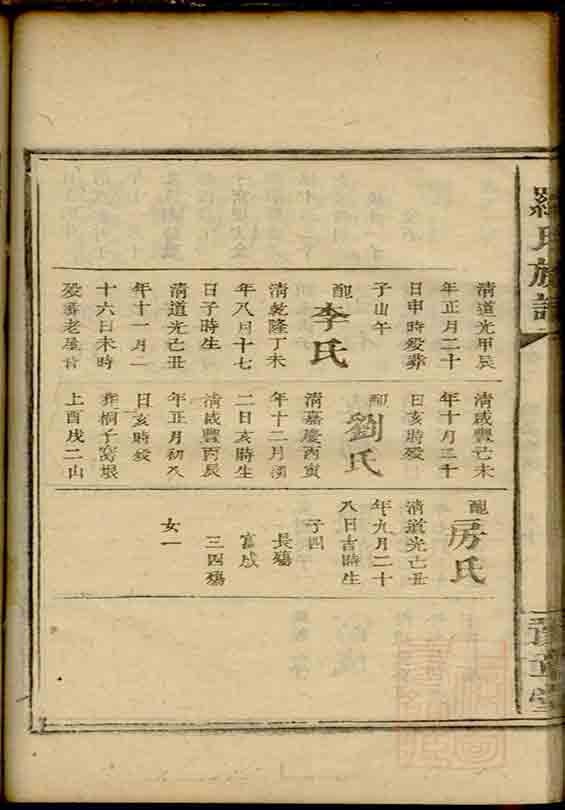 羅氏族譜
清道光甲辰
年正月二十
日申時歿葬
子山午
配李氏
清乾隆丁未
年八月十七
日子時生
清道光己丑
年十一月二
十六日未時
歿葬老屋背
清咸豐己未
年十月三十
日亥時歿
配劉氏
清嘉慶丙寅
年十二月初
二日亥時生
清咸豐丙辰
年正月初八
日亥時歿
葬桐子窩垠
上酉戌二山
配房氏
清道光己丑
年九月二十
八日吉時生
子四
長殤
富成
三四殤
女一
豫章堂